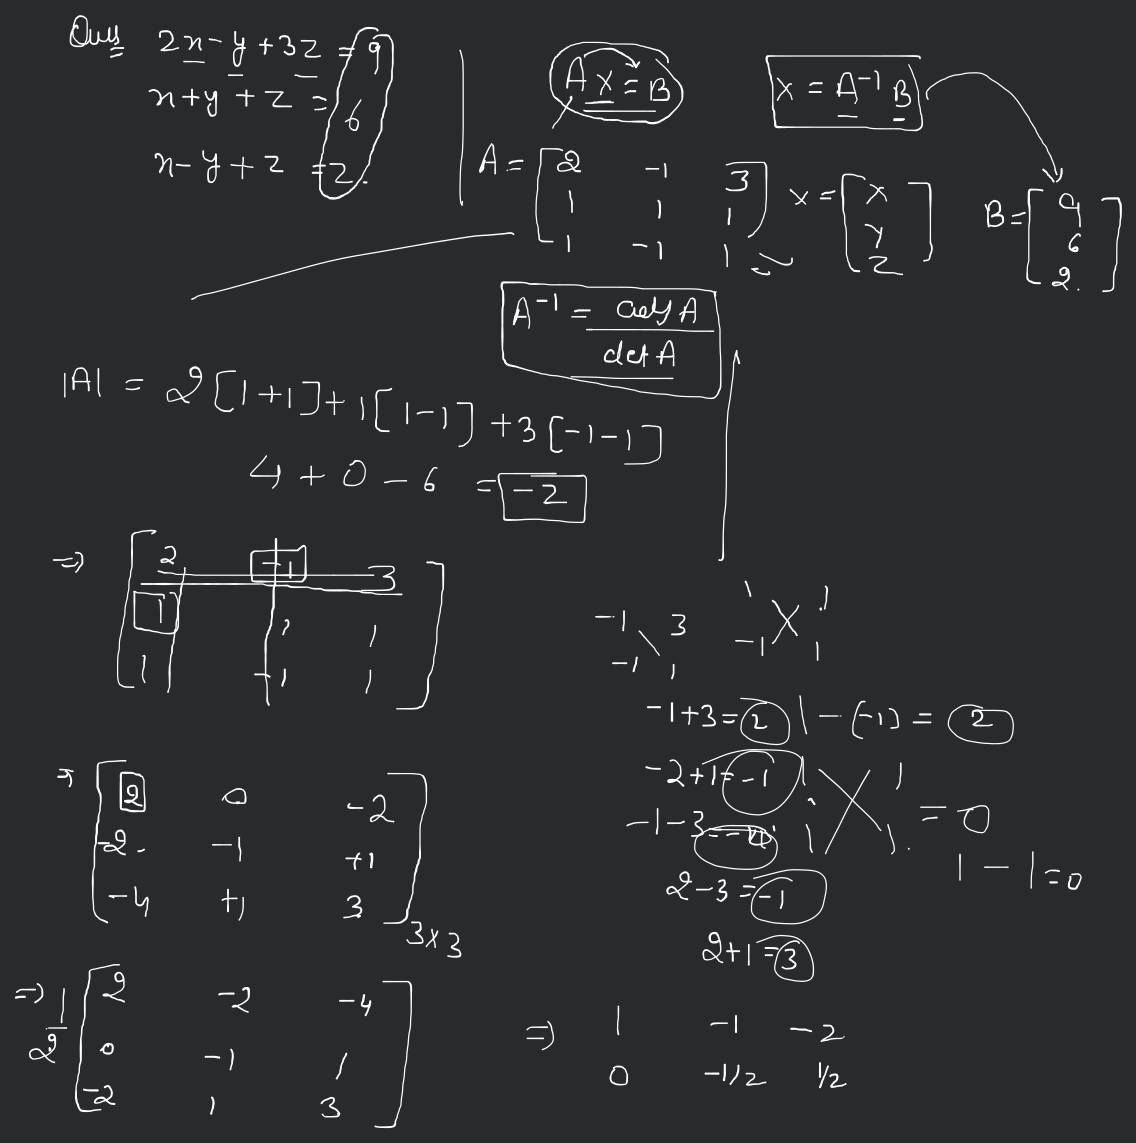 Ques 2x - y + 3z = 9
x + y + z = 6
x - y + z = 2.
AX = B
X = A⁻¹ B
A = [2 -1 3
1 1 1
1 -1 1]
X = [X
Y
Z]
B = [9
6
2.]
A⁻¹ = adj A / det A
|A| = 2[1+1] + 1[1-1] + 3[-1-1]
4 + 0 - 6 = -2
⇒ [2 -1 3
1 1 1
1 -1 1]
-1 3 1 1
-1 1 -1 1
-1+3 = 2 1-(-1) = 2
-2+1 = -1 1 1
-1-3 = -4 1 1 = 0
1 - 1 = 0
2-3 = -1
2+1 = 3
⇒ [2 0 -2
-2. -1 +1
-4 +1 3] 3x3
⇒ 1/2 [2 -2 -4
0 -1 1
-2 1 3]
⇒ 1 -1 -2
0 -1/2 1/2